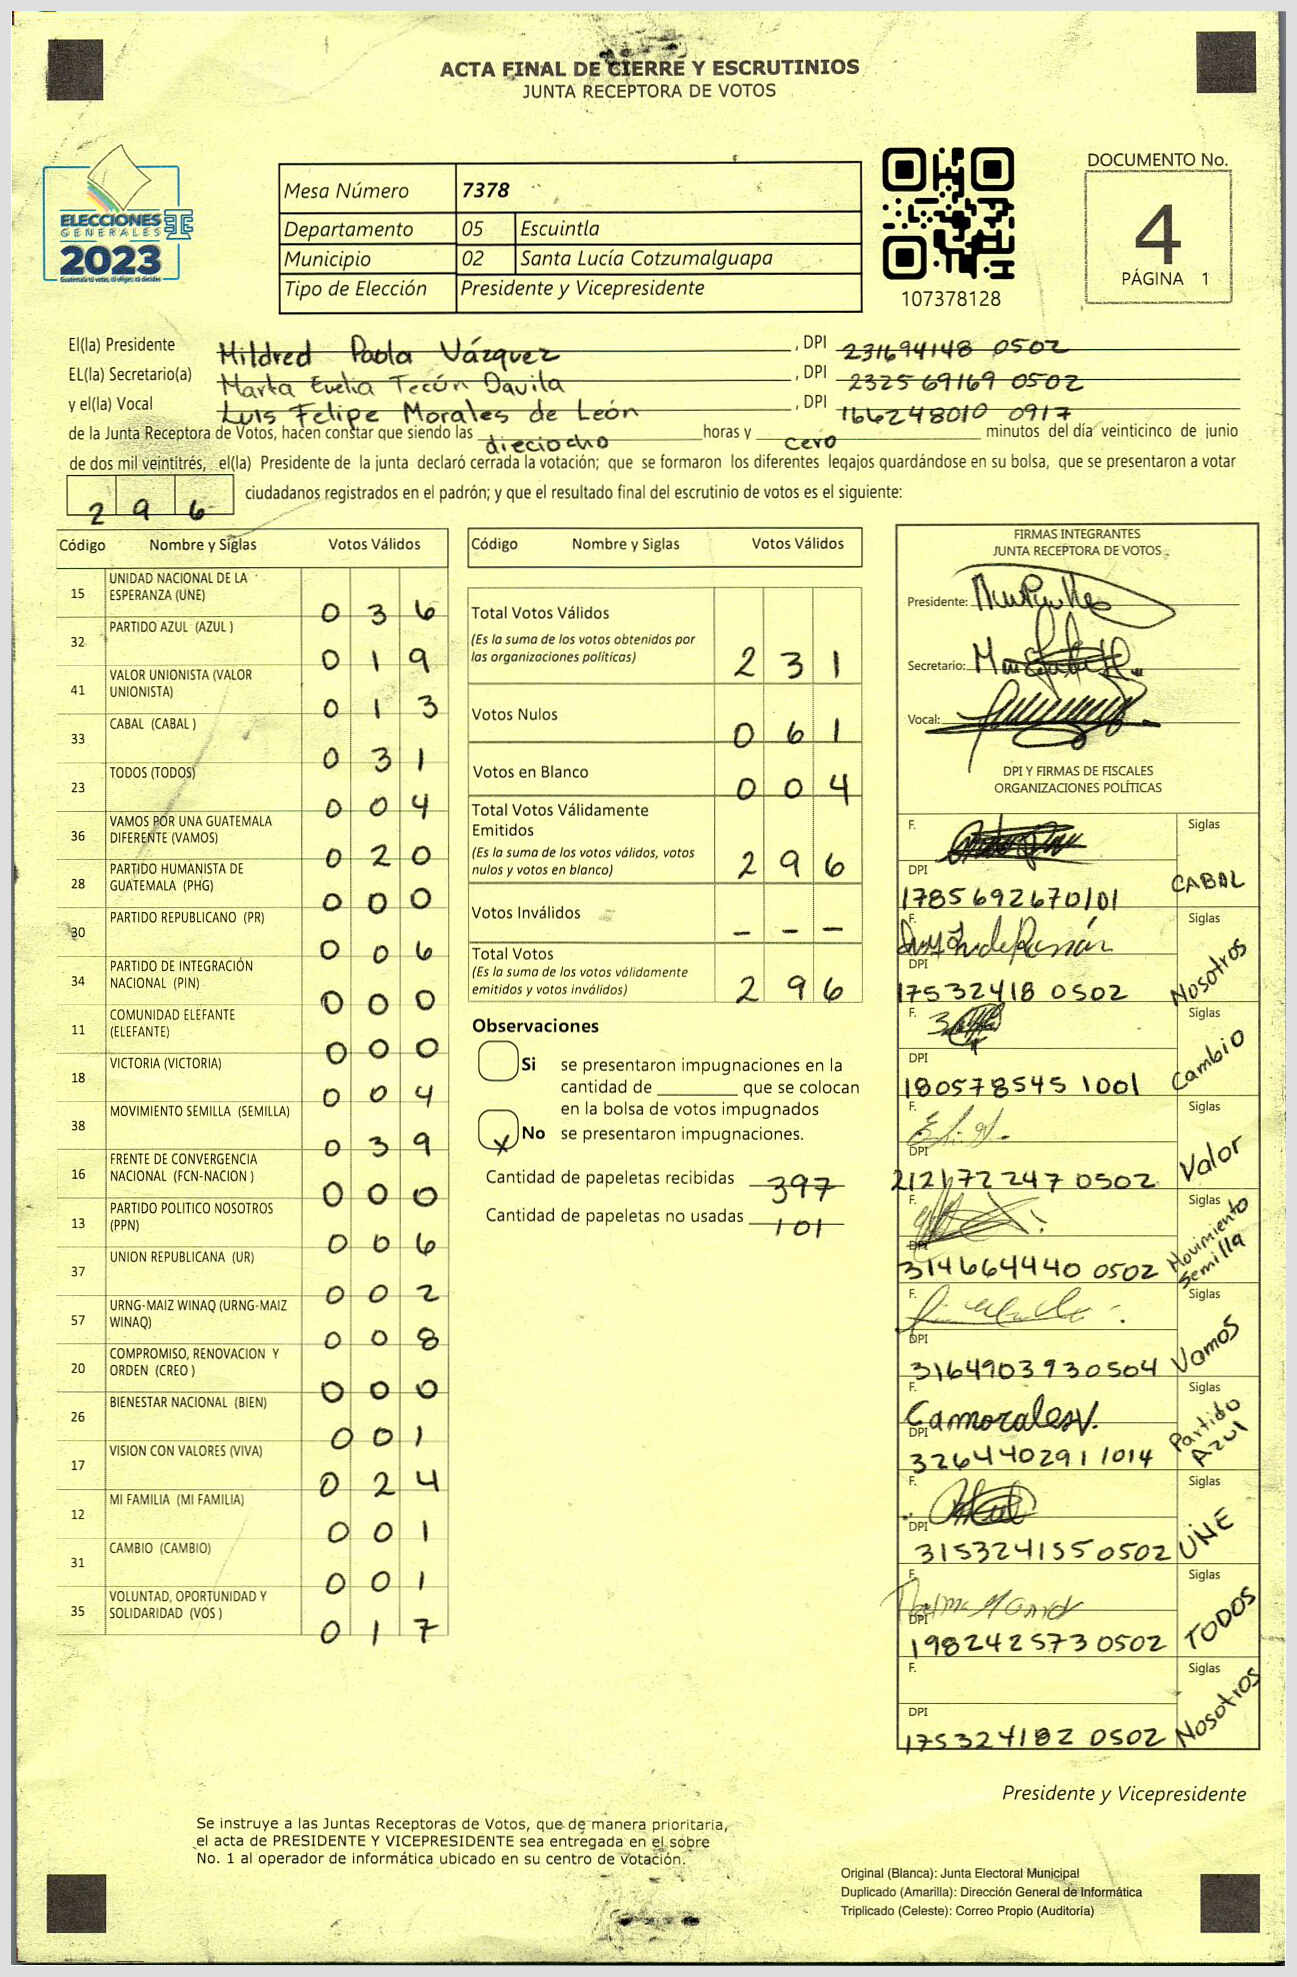 ACTA FINAL DE CIERRE Y ESCRUTINIOS
JUNTA RECEPTORA DE VOTOS
ELECCIONES
GENERALES
2023
Mesa Número 7378
Departamento 05 Escuintla
Municipio 02 Santa Lucía Cotzumalguapa
Tipo de Elección Presidente y Vicepresidente
107378128
DOCUMENTO No.
4
PÁGINA 1
El(la) Presidente Mildred Paola Vázquez, DPI 231694148 0502
EL(la) Secretario(a) Marta Evelia Tecún Davila, DPI 232569169 0502
y el(la) Vocal Luis Felipe Morales de León, DPI 166248010 0917
de la Junta Receptora de Votos, hacen constar que siendo las dieciocho horas y cero minutos del día veinticinco de junio
de dos mil veintitrés, el(la) Presidente de la junta declaró cerrada la votación; que se formaron los diferentes legajos guardándose en su bolsa, que se presentaron a votar
296 ciudadanos registrados en el padrón; y que el resultado final del escrutinio de votos es el siguiente:
Código Nombre y Siglas Votos Válidos
15 UNIDAD NACIONAL DE LA
ESPERANZA (UNE) 036
32 PARTIDO AZUL (AZUL ) 019
41 VALOR UNIONISTA (VALOR
UNIONISTA) 013
33 CABAL (CABAL ) 031
23 TODOS (TODOS) 004
36 VAMOS POR UNA GUATEMALA
DIFERENTE (VAMOS) 020
28 PARTIDO HUMANISTA DE
GUATEMALA (PHG) 000
30 PARTIDO REPUBLICANO (PR) 006
34 PARTIDO DE INTEGRACIÓN
NACIONAL (PIN) 000
11 COMUNIDAD ELEFANTE
(ELEFANTE) 000
18 VICTORIA (VICTORIA) 004
38 MOVIMIENTO SEMILLA (SEMILLA) 039
16 FRENTE DE CONVERGENCIA
NACIONAL (FCN-NACION ) 000
13 PARTIDO POLITICO NOSOTROS
(PPN) 006
37 UNION REPUBLICANA (UR) 002
57 URNG-MAIZ WINAQ (URNG-MAIZ
WINAQ) 008
20 COMPROMISO, RENOVACION Y
ORDEN (CREO ) 000
26 BIENESTAR NACIONAL (BIEN) 001
17 VISION CON VALORES (VIVA) 024
12 MI FAMILIA (MI FAMILIA) 001
31 CAMBIO (CAMBIO) 001
35 VOLUNTAD, OPORTUNIDAD Y
SOLIDARIDAD (VOS ) 017
Código Nombre y Siglas Votos Válidos
Total Votos Válidos
(Es la suma de los votos obtenidos por
las organizaciones políticas) 231
Votos Nulos 061
Votos en Blanco 004
Total Votos Válidamente
Emitidos
(Es la suma de los votos válidos, votos
nulos y votos en blanco) 296
Votos Inválidos - - -
Total Votos
(Es la suma de los votos válidamente
emitidos y votos inválidos) 296
Observaciones
Si se presentaron impugnaciones en la
cantidad de ________ que se colocan
en la bolsa de votos impugnados
X No se presentaron impugnaciones.
Cantidad de papeletas recibidas 397
Cantidad de papeletas no usadas 101
FIRMAS INTEGRANTES
JUNTA RECEPTORA DE VOTOS
Presidente:
Secretario:
Vocal:
DPI Y FIRMAS DE FISCALES
ORGANIZACIONES POLÍTICAS
F. Siglas
DPI CABAL
1785692670101
F. Siglas
DPI Nosotros
17532418 0502
F. Siglas
DPI Cambio
180578545 1001
F. Siglas
DPI Valor
212172247 0502
F. Siglas
DPI Movimiento
Semilla
314664440 0502
F. Siglas
DPI Vamos
3164903930504
F. Siglas
Camorales V.
DPI Partido
Azul
3264402911014
F. Siglas
DPI UNE
315324155 0502
F. Siglas
DPI TODOS
198242573 0502
F. Siglas
DPI Nosotros
175324182 0502
Presidente y Vicepresidente
Se instruye a las Juntas Receptoras de Votos, que de manera prioritaria,
el acta de PRESIDENTE Y VICEPRESIDENTE sea entregada en el sobre
No. 1 al operador de informática ubicado en su centro de votación.
Original (Blanca): Junta Electoral Municipal
Duplicado (Amarilla): Dirección General de Informática
Triplicado (Celeste): Correo Propio (Auditoria)